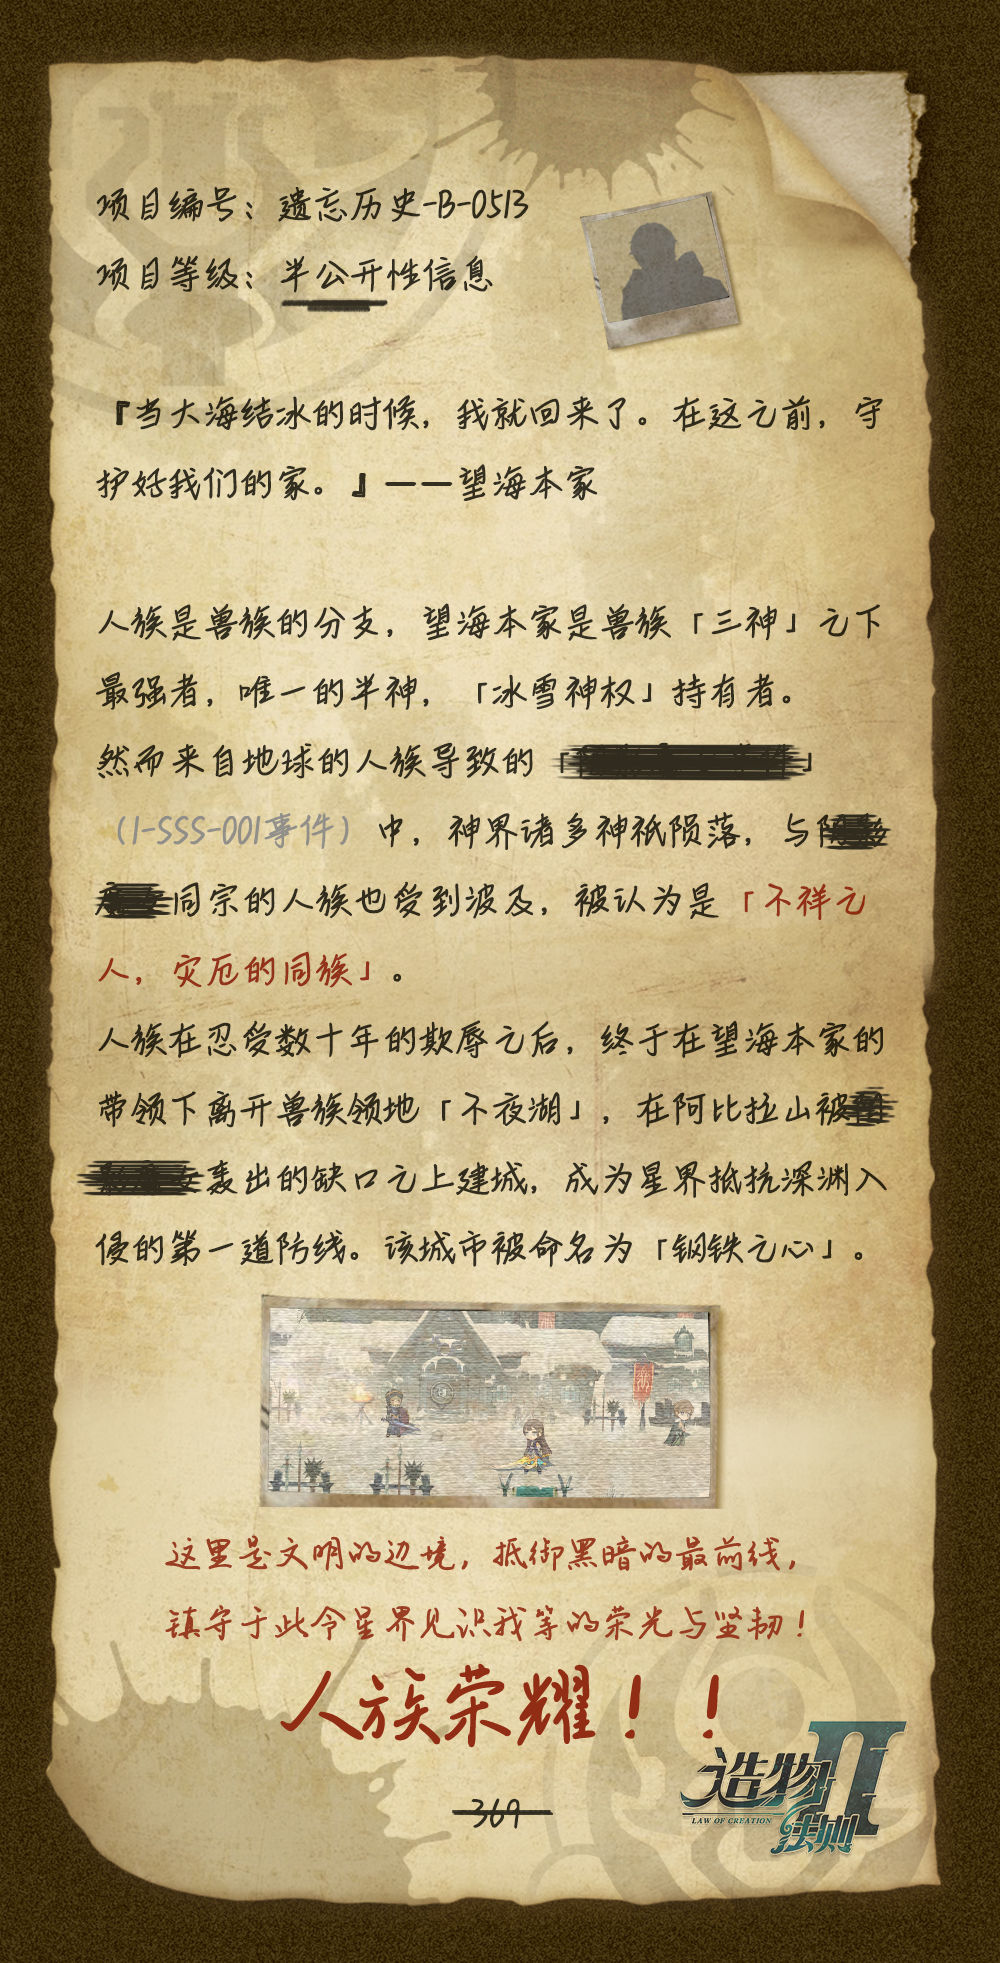 项目编号：遗忘历史-B-0513
项目等级：半公开性信息
『当大海结冰的时候，我就回来了。在这之前，守
护好我们的家。』——望海本家
人族是兽族的分支，望海本家是兽族「三神」之下
最强者，唯一的半神，「冰雪神权」持有者。
然而来自地球的人族导致的「」
（1-SSS-001事件）中，神界诸多神祇陨落，与
同宗的人族也受到波及，被认为是「不祥之
人，灾厄的同族」。
人族在忍受数十年的欺辱之后，终于在望海本家的
带领下离开兽族领地「不夜湖」，在阿比拉山被
轰出的缺口之上建城，成为星界抵抗深渊入
侵的第一道防线。该城市被命名为「钢铁之心」。
这里是文明的边境，抵御黑暗的最前线，
镇守于此令星界见识我等的荣光与坚韧！
人族荣耀！！
369
造物法则II
LAW OF CREATION